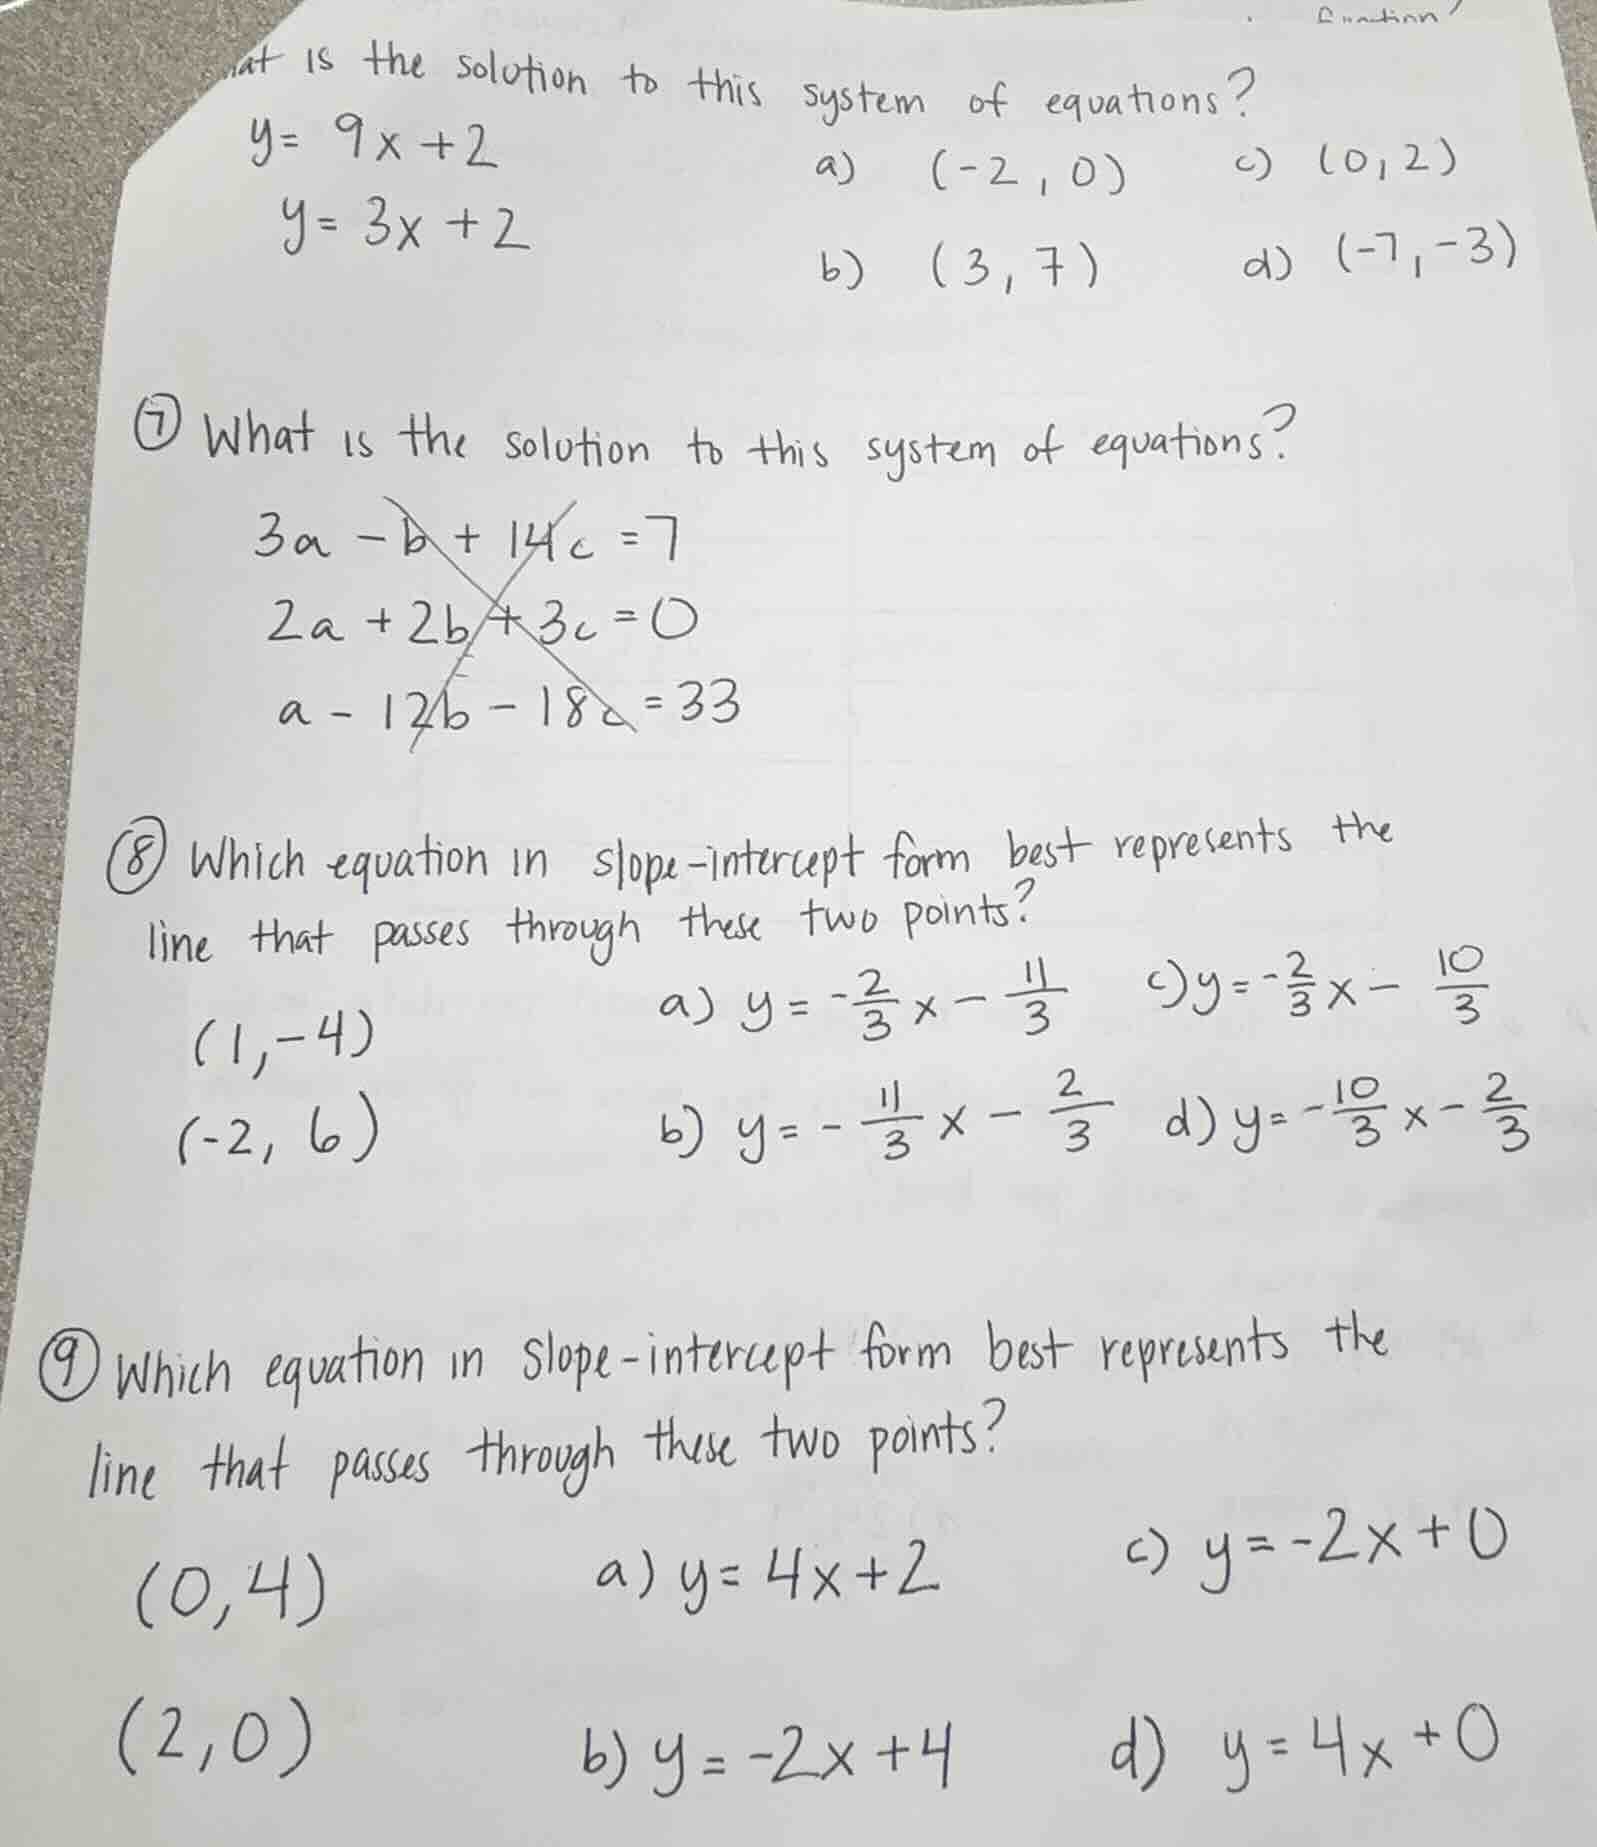 is the solution to this system of equations?
y = 9x + 2
a) (-2, 0) c) (0, 2)
y = 3x + 2
b) (3, 7) d) (-7, -3)
⑦ What is the solution to this system of equations?
3a - b + 14c = 7
2a + 2b + 3c = 0
a - 12b - 18c = 33
⑧ Which equation in slope-intercept form best represents the
line that passes through these two points?
(1, -4) a) y = -2/3 x - 11/3 c) y = -2/3 x - 10/3
(-2, 6) b) y = - 11/3 x - 2/3 d) y = -10/3 x - 2/3
⑨ Which equation in slope-intercept form best represents the
line that passes through these two points?
(0, 4) a) y = 4x + 2 c) y = -2x + 0
(2, 0) b) y = -2x + 4 d) y = 4x + 0